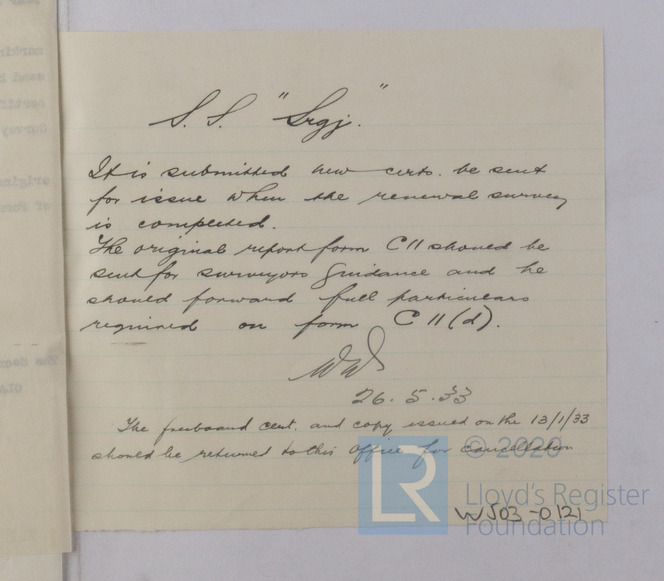 S.S. "Srgj."
It is submitted new certs. be sent
for issue when the renewal survey
is completed.
The original report form C11 should be
sent for surveyors guidance and he
should forward full particulars
required on form C11(d).
26. 5. 33
The freeboard cert. and copy issued on the 13/1/33
should be returned to this office for cancellation
LR
© 2020
Lloyd's Register
Foundation
W503-0121